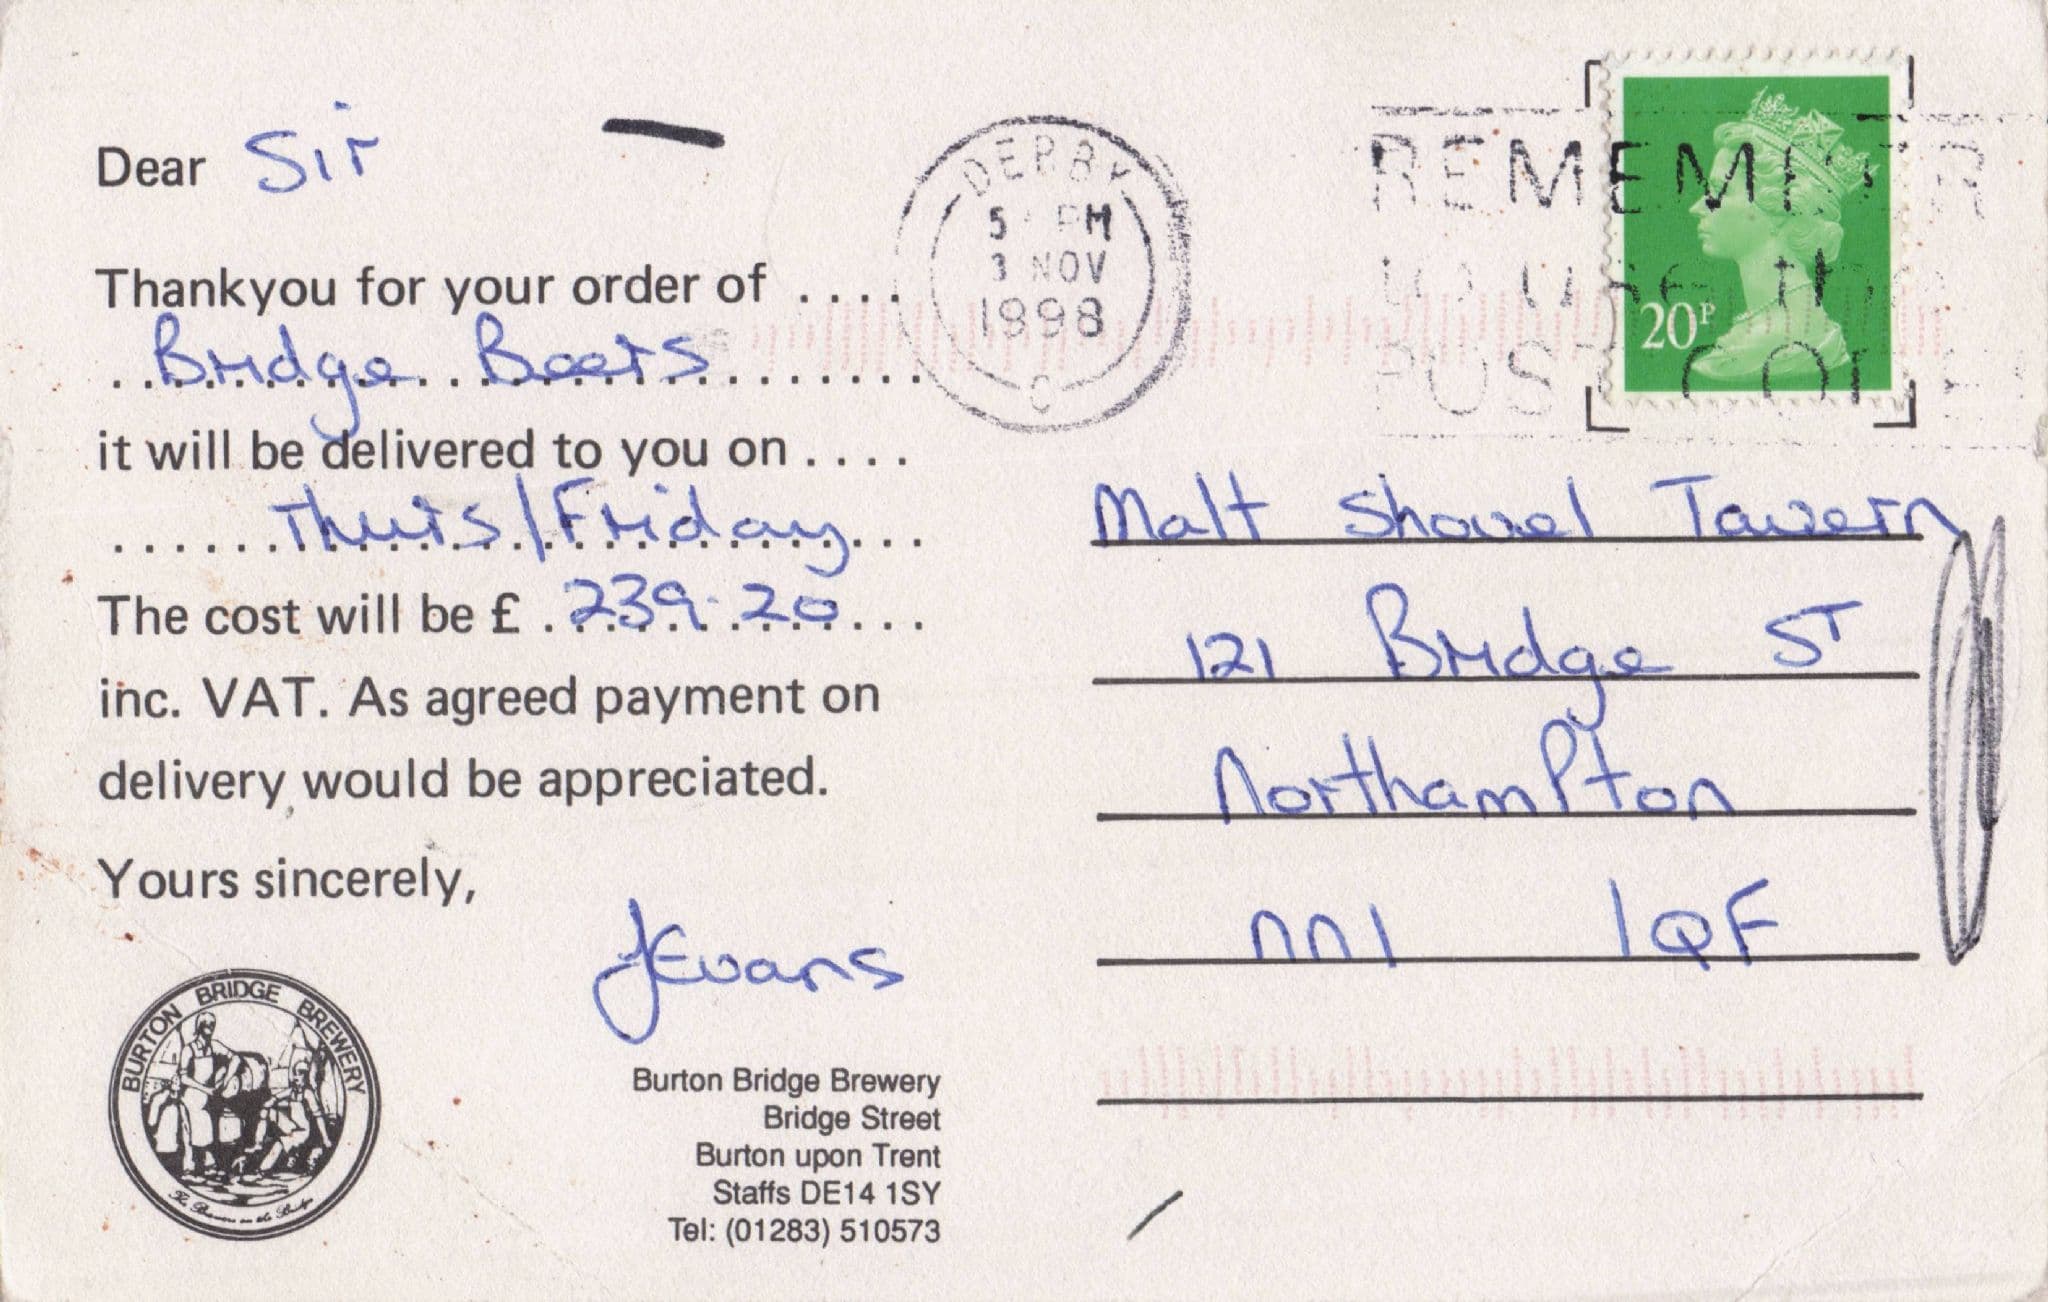 Dear Sir
Thankyou for your order of ....
Bridge Beers
it will be delivered to you on ....
Thurs/Friday
The cost will be £ 239.20
inc. VAT. As agreed payment on
delivery would be appreciated.
Yours sincerely,
JEvans
BURTON BRIDGE BREWERY
Burton Bridge Brewery
Bridge Street
Burton upon Trent
Staffs DE14 1SY
Tel: (01283) 510573
DERBY
5 PM
3 NOV
1998
C
REMEMBER
to use the
POST CODE
20P
Malt Shovel Tavern
121 Bridge ST
Northampton
NN1 1QF